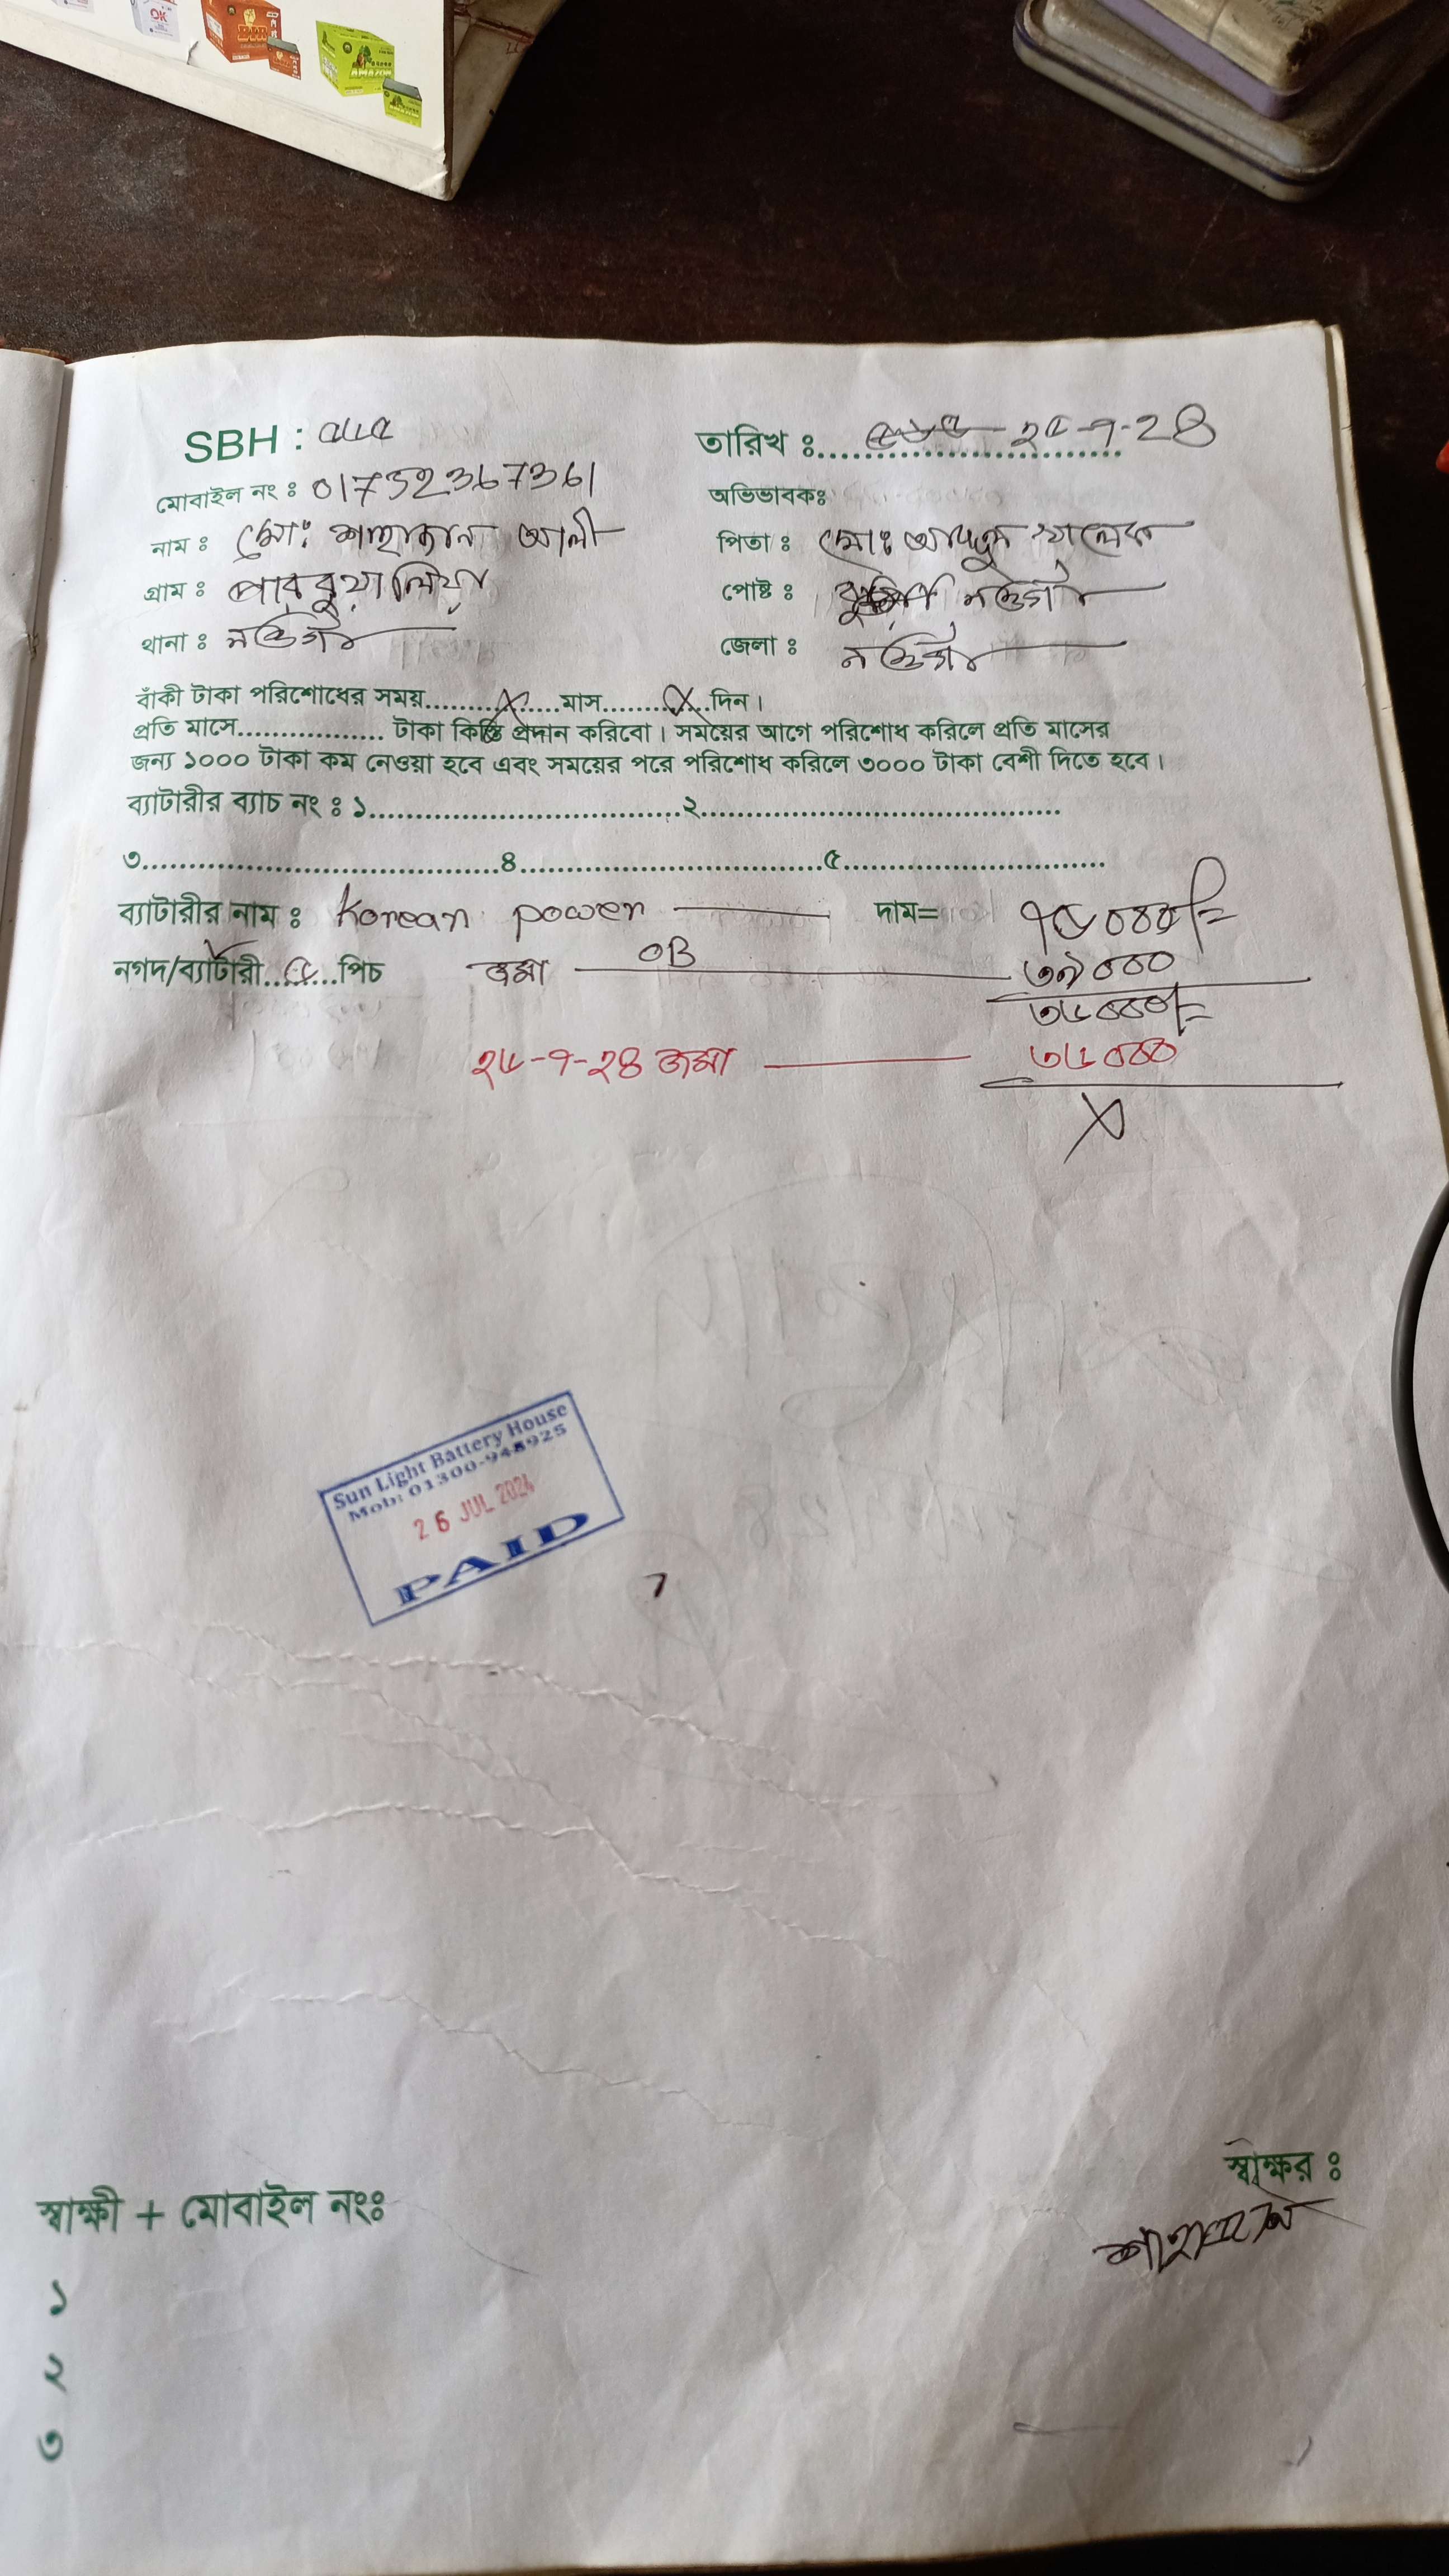 OK
AMAZON
SBH : ৫৬৫
তারিখ ঃ ২৫-৭-২৪
মোবাইল নং ঃ 01752367361
অভিভাবকঃ
নাম ঃ মোঃ শাহাজান আলী
পিতা ঃ মোঃ আব্দুল খালেক
গ্রাম ঃ পারবুয়ালিয়া
পোষ্ট ঃ নওগাঁ
থানা ঃ নওগাঁ
জেলা ঃ নওগাঁ
বাঁকী টাকা পরিশোধের সময়..........X......মাস.........X...দিন।
প্রতি মাসে................. টাকা কিস্তি প্রদান করিবো। সময়ের আগে পরিশোধ করিলে প্রতি মাসের
জন্য ১০০০ টাকা কম নেওয়া হবে এবং সময়ের পরে পরিশোধ করিলে ৩০০০ টাকা বেশী দিতে হবে।
ব্যাটারীর ব্যাচ নং ঃ ১..................................২.......................................
৩.......................................৪.................................৫............................
ব্যাটারীর নাম ঃ Korean power দাম= ৭৫০০০/=
নগদ/ব্যাটারী...৫...পিচ জমা OB ৩৯০০০
৩৬০০০/=
২৬-৭-২৪ জমা ৩৬০০০
X
Sun Light Battery House
Mob: 01300-948925
26 JUL 2024
PAID
স্বাক্ষর ঃ
শাহাজান
স্বাক্ষী + মোবাইল নংঃ
১
২
৩